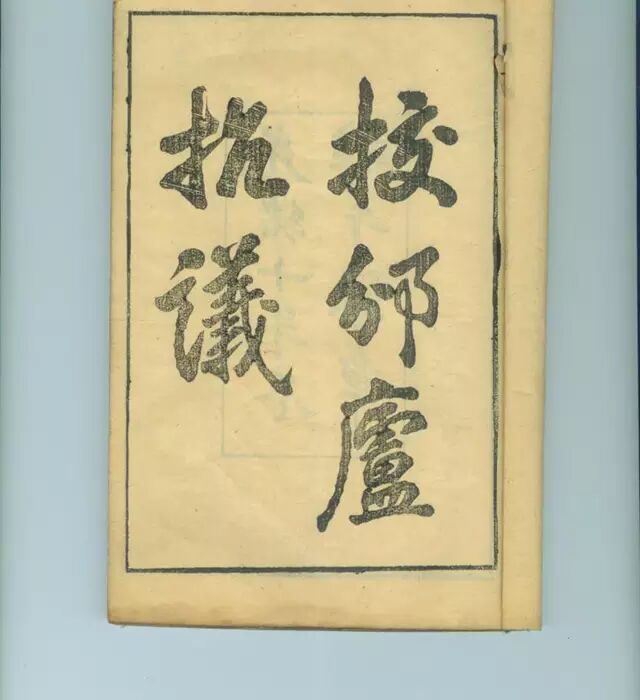 挍邠廬
抗議